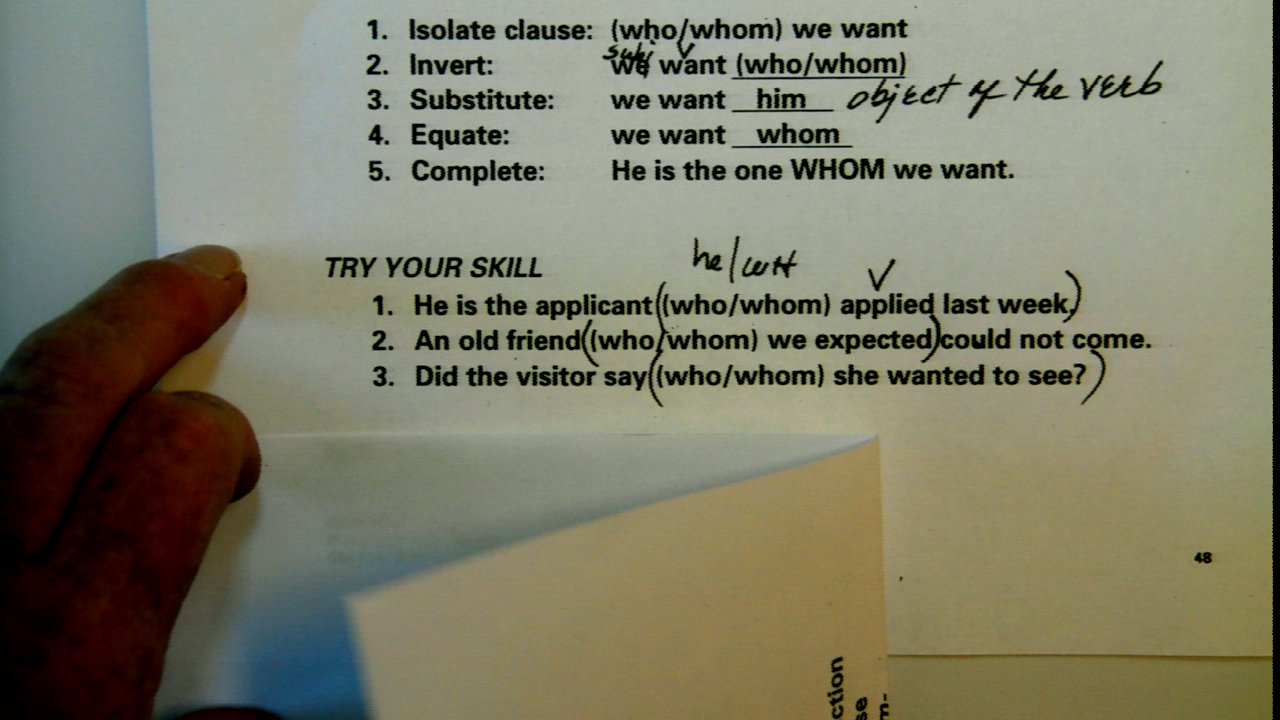 1. Isolate clause: (who/whom) we want
subj
2. Invert: we want (who/whom)
3. Substitute: we want him object of the verb
4. Equate: we want whom
5. Complete: He is the one WHOM we want.
he/
TRY YOUR SKILL
1. He is the applicant ((who/whom) applied last week.)
2. An old friend ((who/whom) we expected) could not come.
3. Did the visitor say ((who/whom) she wanted to see?)
48
ction
se
m-